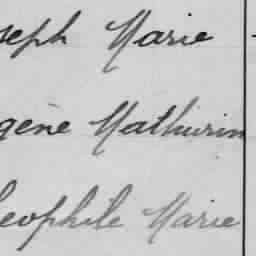 seph Marie
gène Mathurin
leophile Marie